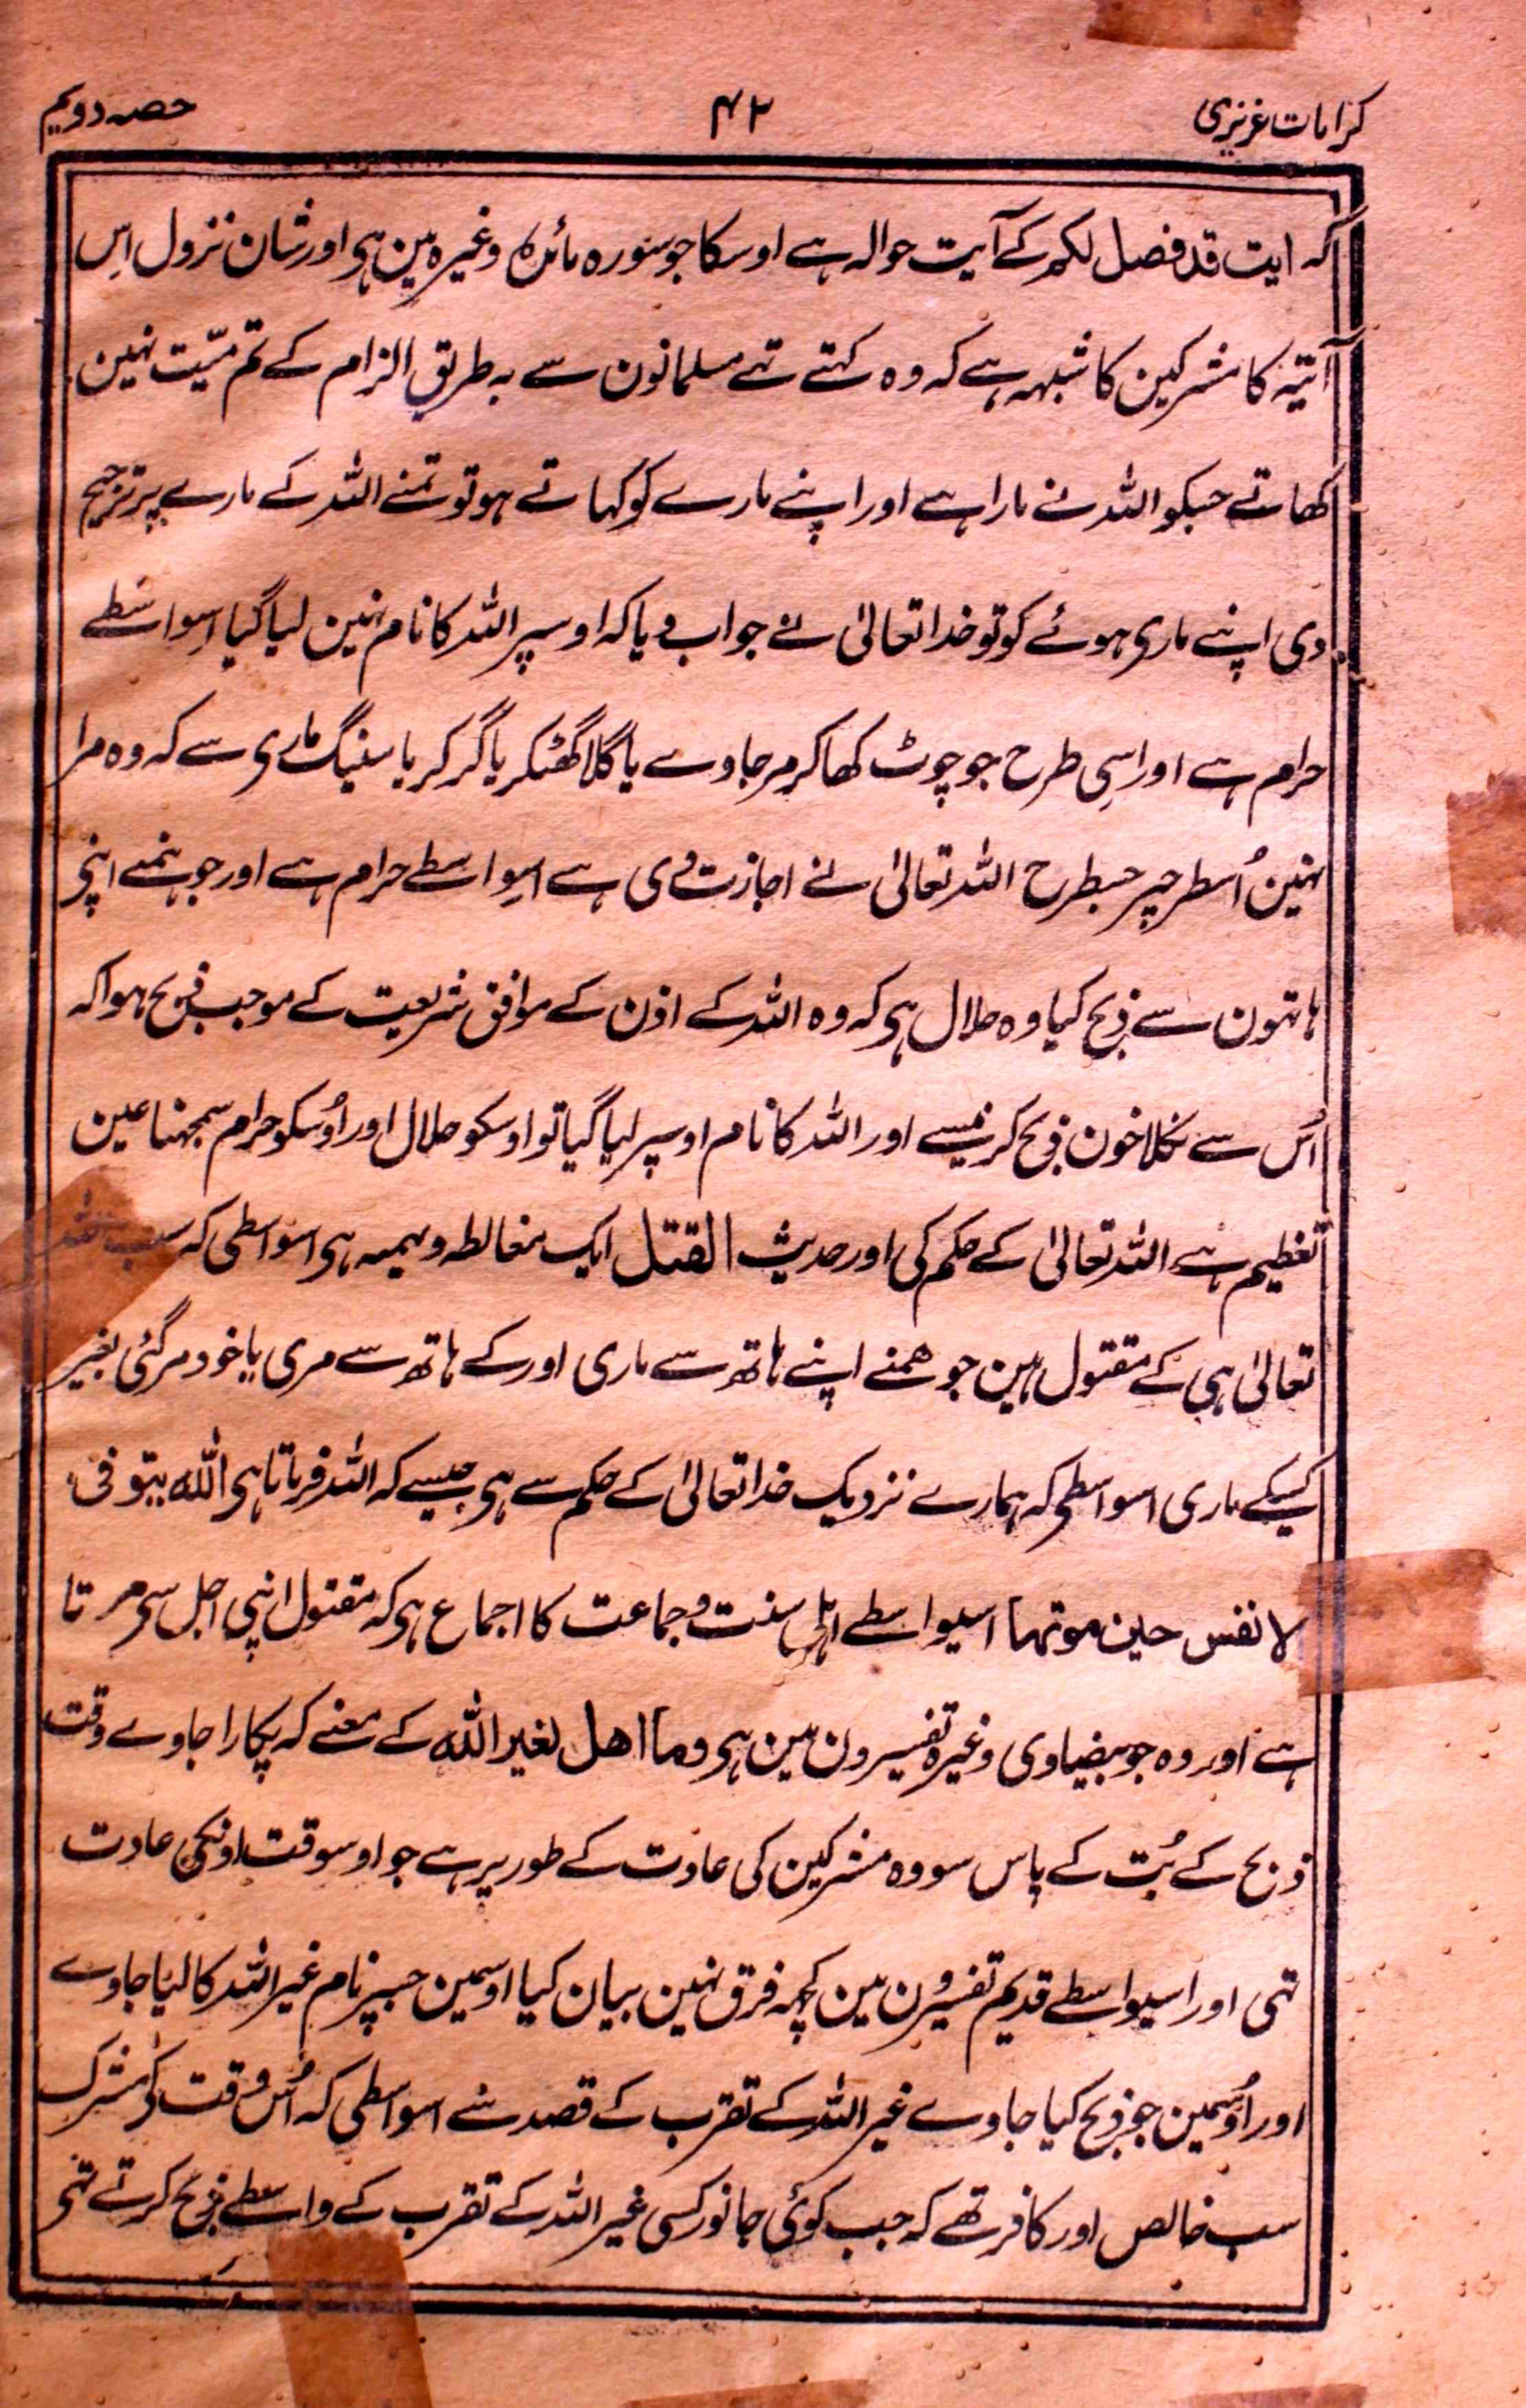 کرامات عزیزی
۴۲
حصہ دویم
کہ ایت قد فصل لکم کے آیت حوالہ ہے اوسکا جو سورہ مائدہ وغیرہ مین ہی اور شان نزول اِس
آیتہ کا مشرکین کا شبہہ ہے کہ وہ کہتے تہے مسلمانون سے بہ طریق الزام کے تم میّت نہین
کھاتے جسکو اللہ نے مارا ہے اور اپنے مارے کو کہاتے ہو تو تمنے اللہ کے مارے پر ترجیح
دی اپنے ماری ہوئے کو تو خدا تعالیٰ نے جواب دیا کہ اوسپر اللہ کا نام نہین لیا گیا اسواسطے
حرام ہے اور اسِی طرح جو چوٹ کھا کر مر جاوے یا گلا گھٹکر یا گر کر یا سینگ ماری سے کہ وہ مرا
نہین اُسطرحپر جسطرح اللہ تعالیٰ نے اجازت دی ہے اسِواسطے حرام ہے اور جو ہمنے اپنی
ہاتہون سے ذبح کیا وہ حلال ہی کہ وہ اللہ کے اذن کے موافق شریعت کے موجب ذبح ہوا کہ
اُس سے نکلا خون ذبح کرنیسے اور اللہ کا نام اوسپر لیا گیا تو اوسکو حلال اور اُوسکو حرام سمجہنا عین
تعظیم ہے اللہ تعالیٰ کے حکم کی اور حدیث القتل ایک مغالطہ وہمیہ ہی اسواسطی کہ سب
تعالیٰ ہی کے مقتول ہین جو ھمنے اپنے ہاتھ سے ماری اور کے ہاتھ سے مری یا خود مر گئی بغیر
کسیکے ماری اسواسطی کہ ہمارے نزدیک خدا تعالیٰ کے حکم سے ہی جیسے کہ اللہ فرماتا ہی اللہ یتوفی
لانفس حین موتہا اسیواسطے اہل سنت و جماعت کا اجماع ہی کہ مقتول اپنی اجل سی مرتا
ہے اور وہ جو بیضاوی وغیرہ تفسیرون مین ہی وما اھل لغیر اللہ کے معنے کہ پکارا جاوے وقت
ذبح کے بُت کے پاس سو وہ مشرکین کی عادت کے طور پر ہے جو اوسوقت اونکی عادت
تہی اور اسیواسطے قدیم تفسیرون مین کچہہ فرق نہین بیان کیا اوسمین جسپر نام غیر اللہ کا لیا جاوے
اور اُوسمین جو ذبح کیا جاوے غیر اللہ کے تقرب کے قصد سے اسواسطی کہ اُس وقت کی مشرک
سب خالص اور کافر تھے کہ جب کوئی جانور کسی غیر اللہ کے تقرب کے واسطے ذبح کرتے تہی